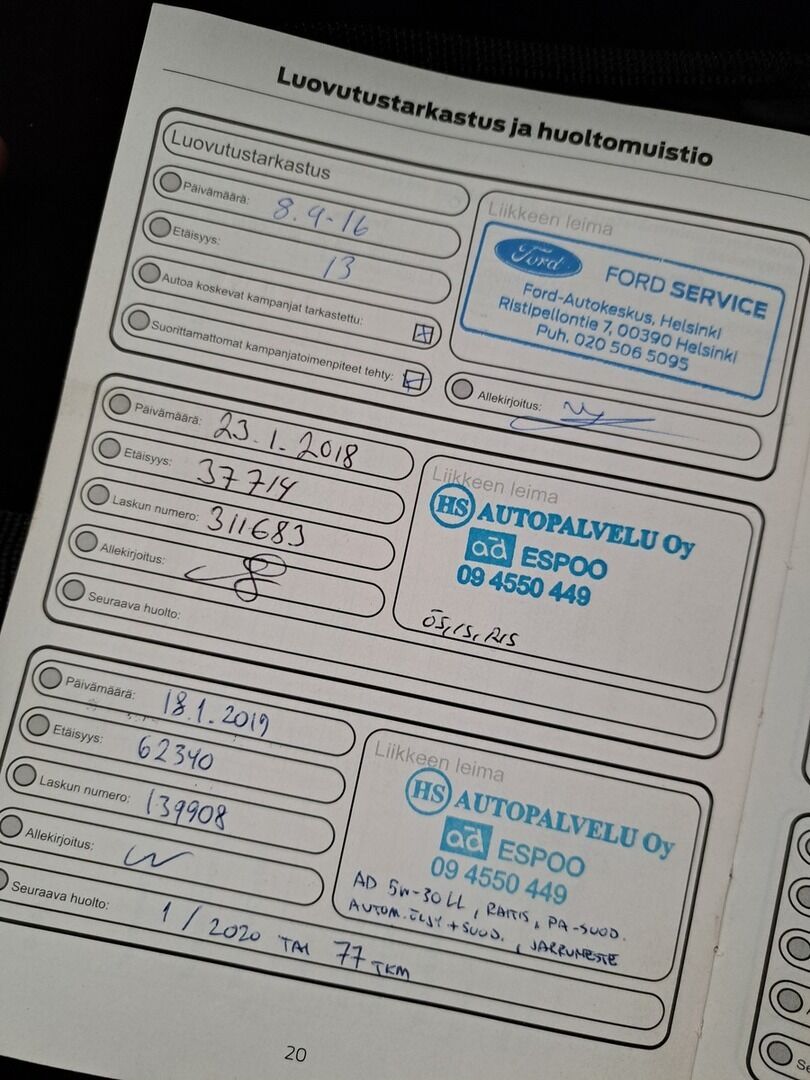 Luovutustarkastus ja huoltomuistio
Luovutustarkastus
Päivämäärä: 8.9-16
Etäisyys: 13
Autoa koskevat kampanjat tarkastettu:
Suorittamattomat kampanjatoimenpiteet tehty:
Liikkeen leima
Ford
FORD SERVICE
Ford-Autokeskus, Helsinki
Ristipellontie 7, 00390 Helsinki
Puh. 020 506 5095
Allekirjoitus:
Päivämäärä: 23.1.2018
Etäisyys: 37714
Laskun numero: 311683
Allekirjoitus:
Seuraava huolto:
Liikkeen leima
HS AUTOPALVELU Oy
ad ESPOO
09 4550 449
ÖS, IS, RIS
Päivämäärä: 18.1.2019
Etäisyys: 62340
Laskun numero: 139908
Allekirjoitus:
Seuraava huolto: 1/2020 TAI 77 TKM
Liikkeen leima
HS AUTOPALVELU Oy
ad ESPOO
09 4550 449
AD 5W-30 LL, RAITIS, PA-SUOD.
AUTOM.ÖLJY + SUOD., JARRUNESTE
20